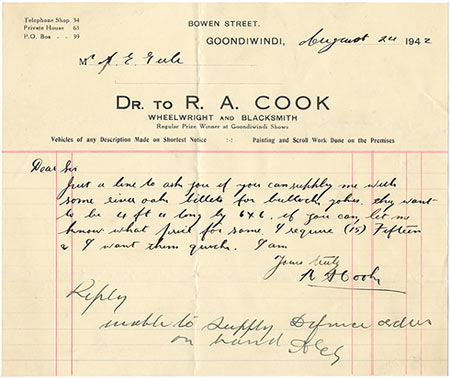 Telephone Shop 34
Private House 65
P.O. Box .. 39
BOWEN STREET.
GOONDIWINDI, August 24 1942
Mr A. E.
DR. TO R. A. COOK
WHEELWRIGHT AND BLACKSMITH
Regular Prize Winner at Goondiwindi Shows
Vehicles of any Description Made on Shortest Notice :-: Painting and Scroll Work Done on the Premises
Dear Sir
Just a line to ask you if you can supply me with
some river oak billets for bullock yokes. they want
to be 4 ft long by 6x6. if you can let me
know what price for same. I require (15) Fifteen
I want them quick. I am
Yours truly
R A Cook
Reply
unable to supply Defence orders
on hand